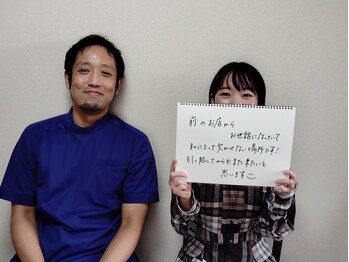 前のお店から
お世話になっていて
私にとって欠かせない場所です!
引っ越してからもまた来たいと
思います